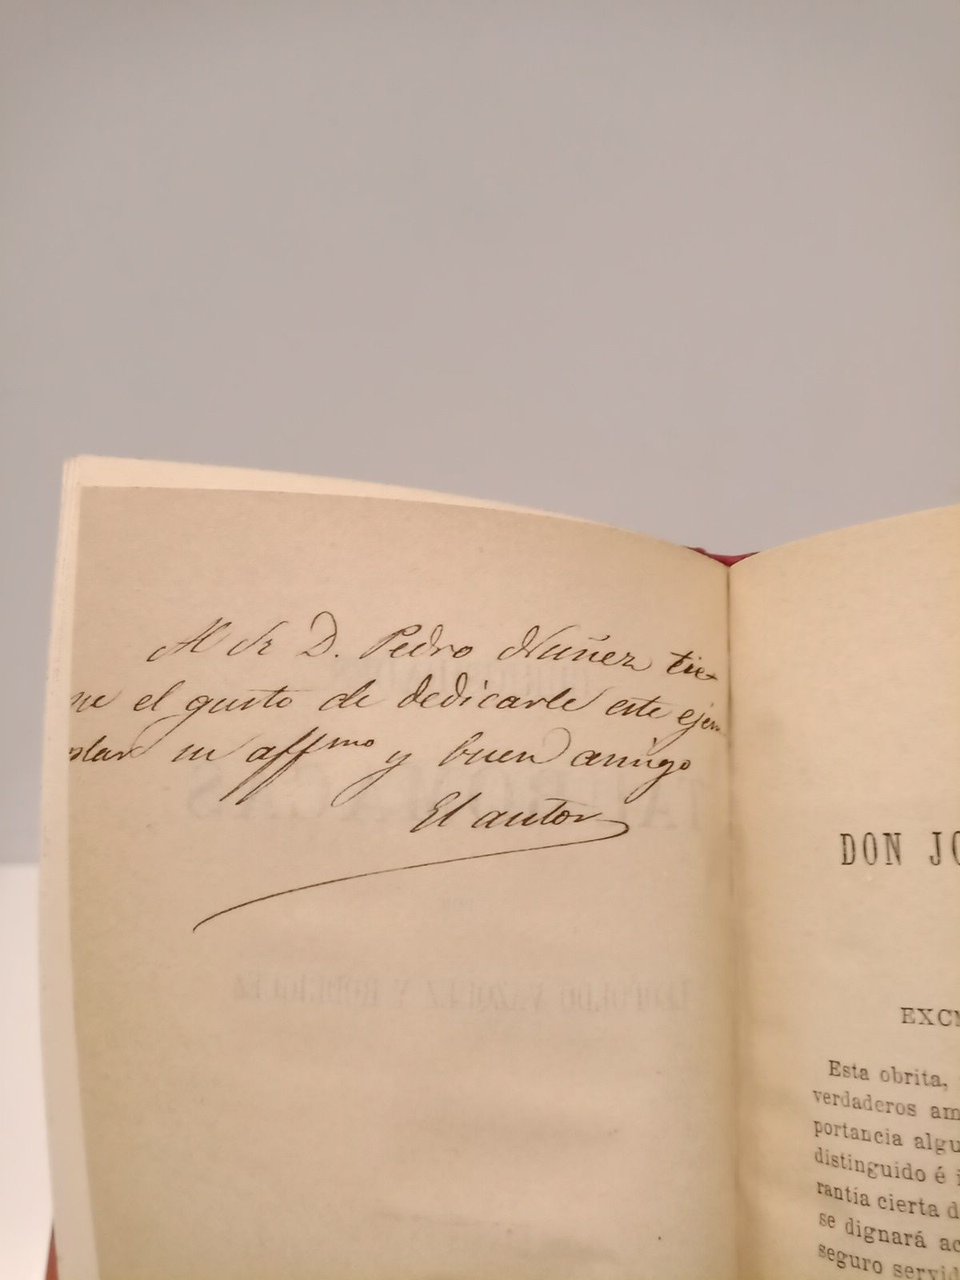 Al Sr D. Pedro Nuñez tie-
ne el gusto de dedicarle este ejem
plar su affmo y buen amigo
El autor
DON JO
EXCM
Esta obrita,
verdaderos am
portancia algu
distinguido é i
rantia cierta d
se dignará ac
seguro servid
TAUROMACAS
POR
LEOPOLDO VAZQUEZ Y RODRIGUEZ